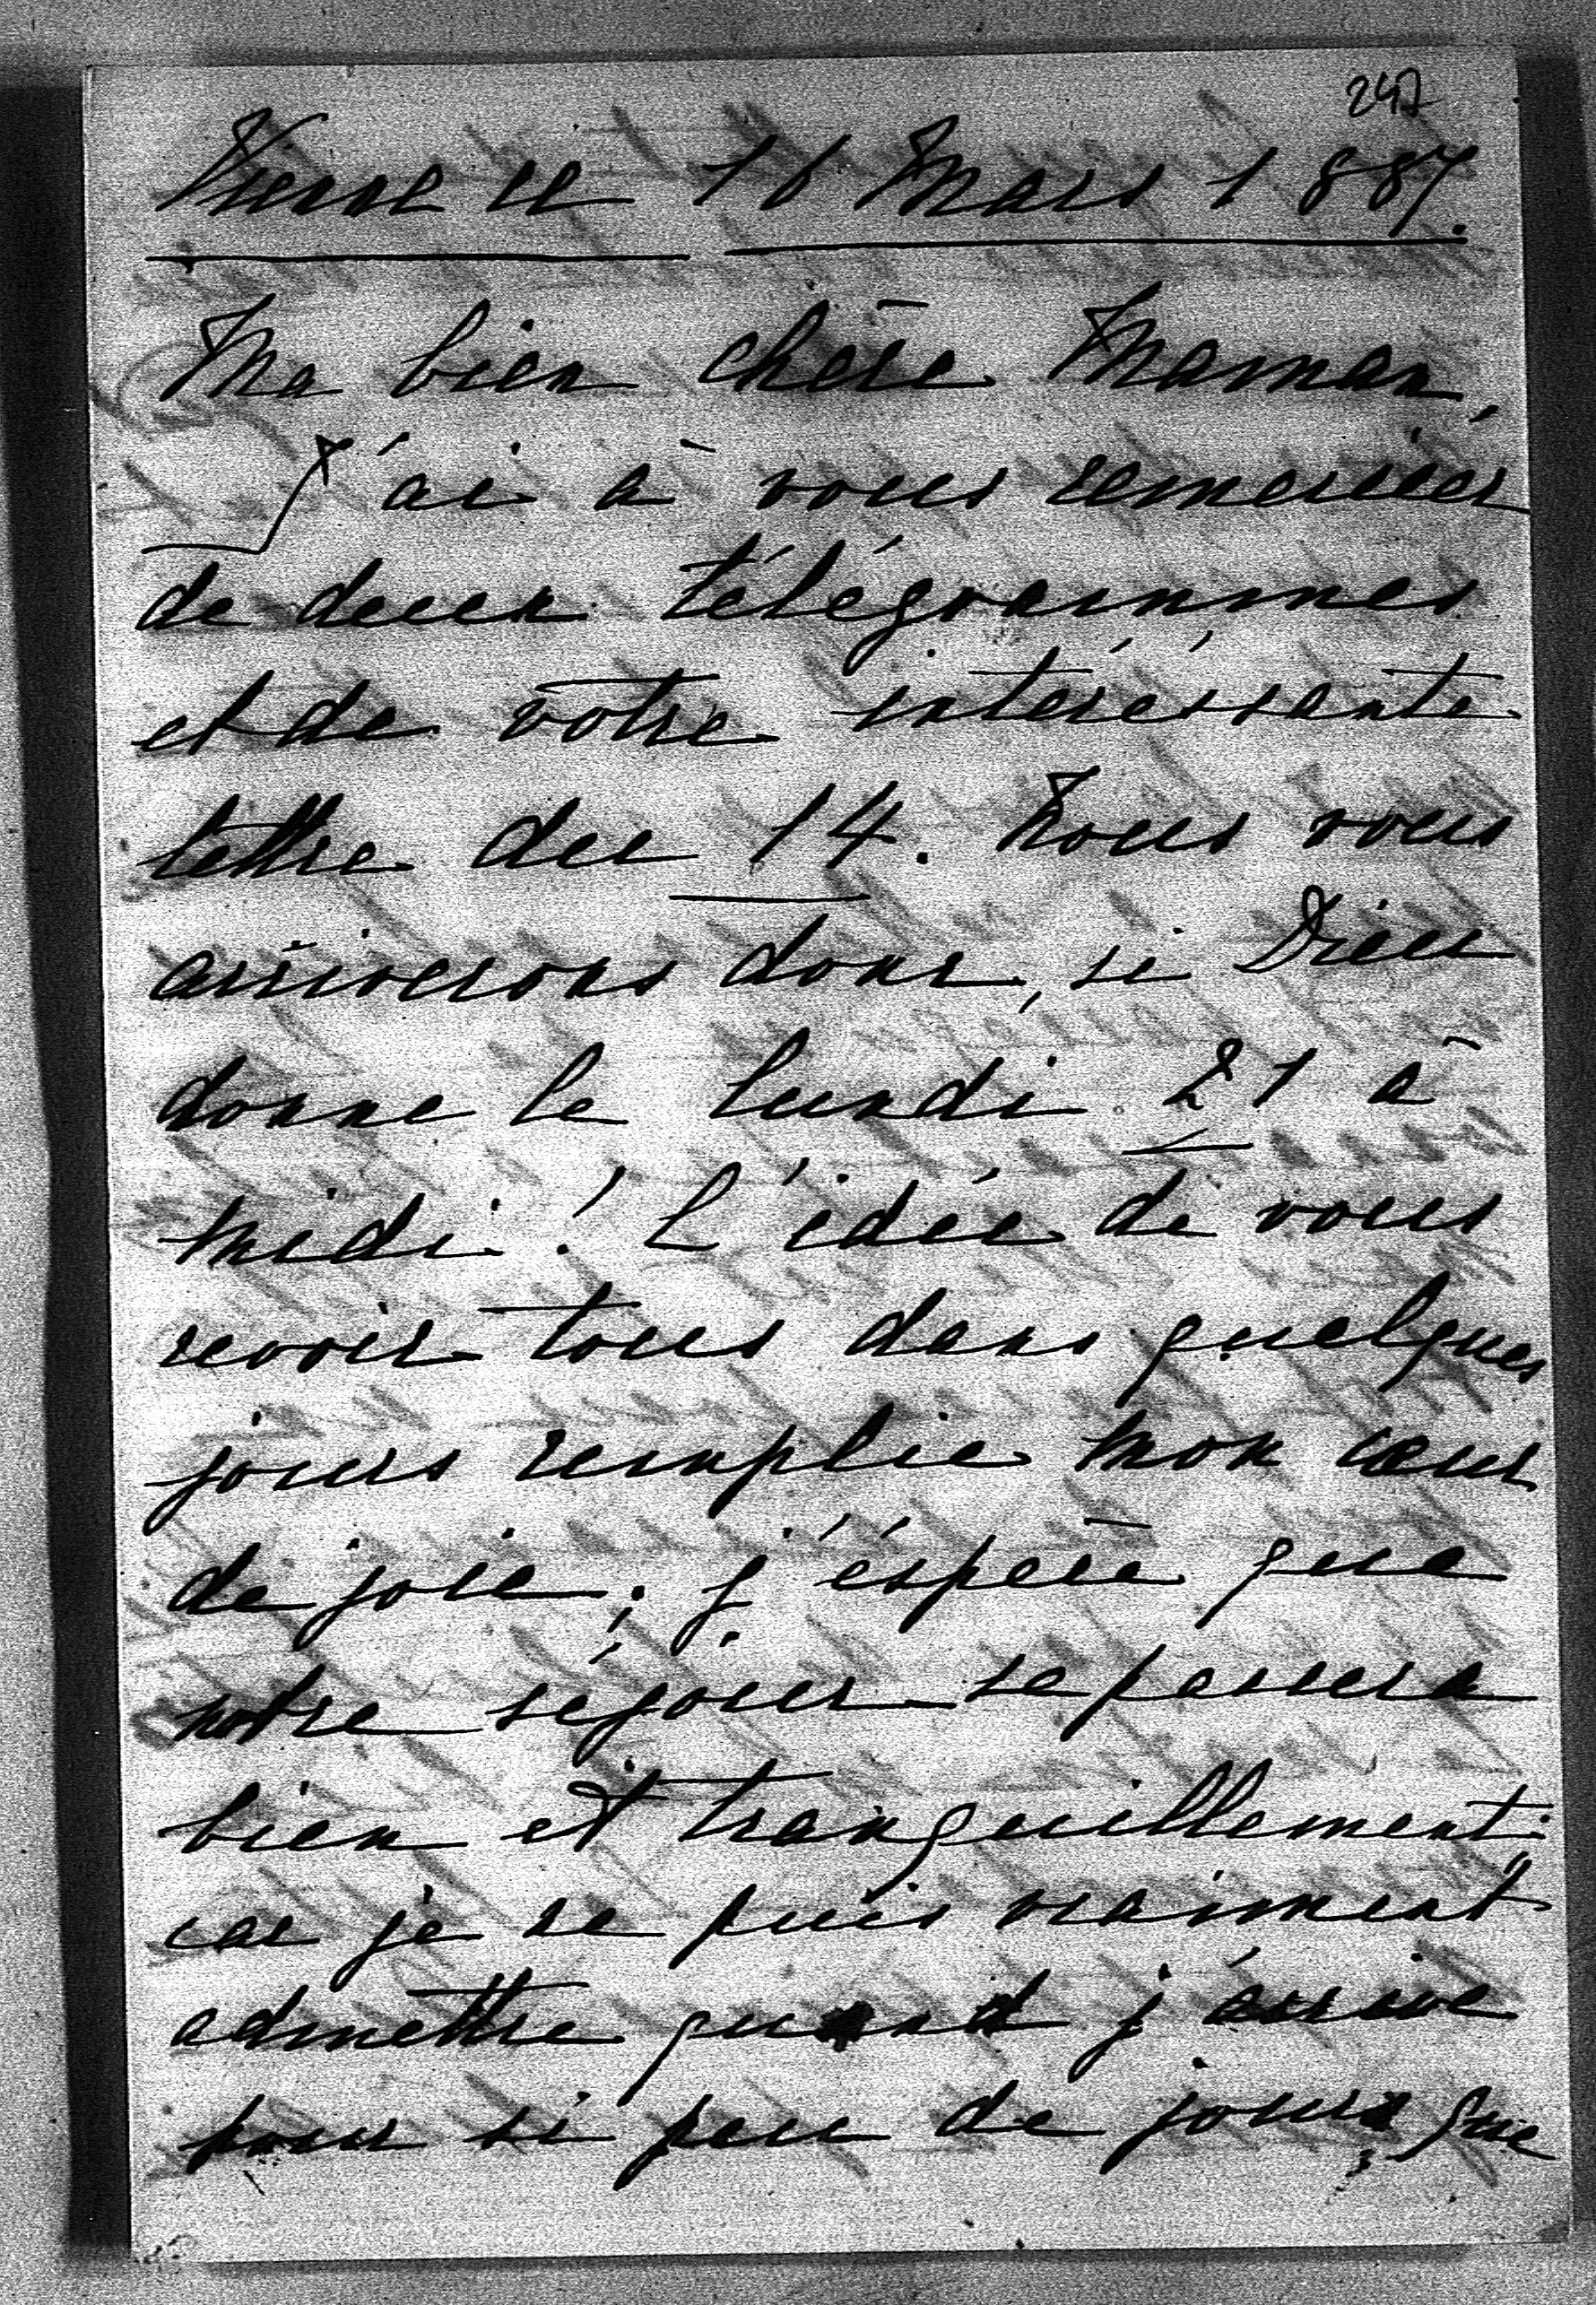 247
Vienne le 16 Mars 1887.
Ma bien chère Maman,
J'ai à vous remercier
de deux télégrammes
et de votre intéréssante
lettre du 14. Nous vous
arriverons donc, si Dieu
donne le lundi 21 à
midi! L'idée de vous
revoir tous dans quelques
jours remplie mon cœur
de joie; j'éspère que
notre séjour se passera
bien et tranquillement;
car je ne puis vraiment
admettre quand j'arrive
pour si peu de jours que